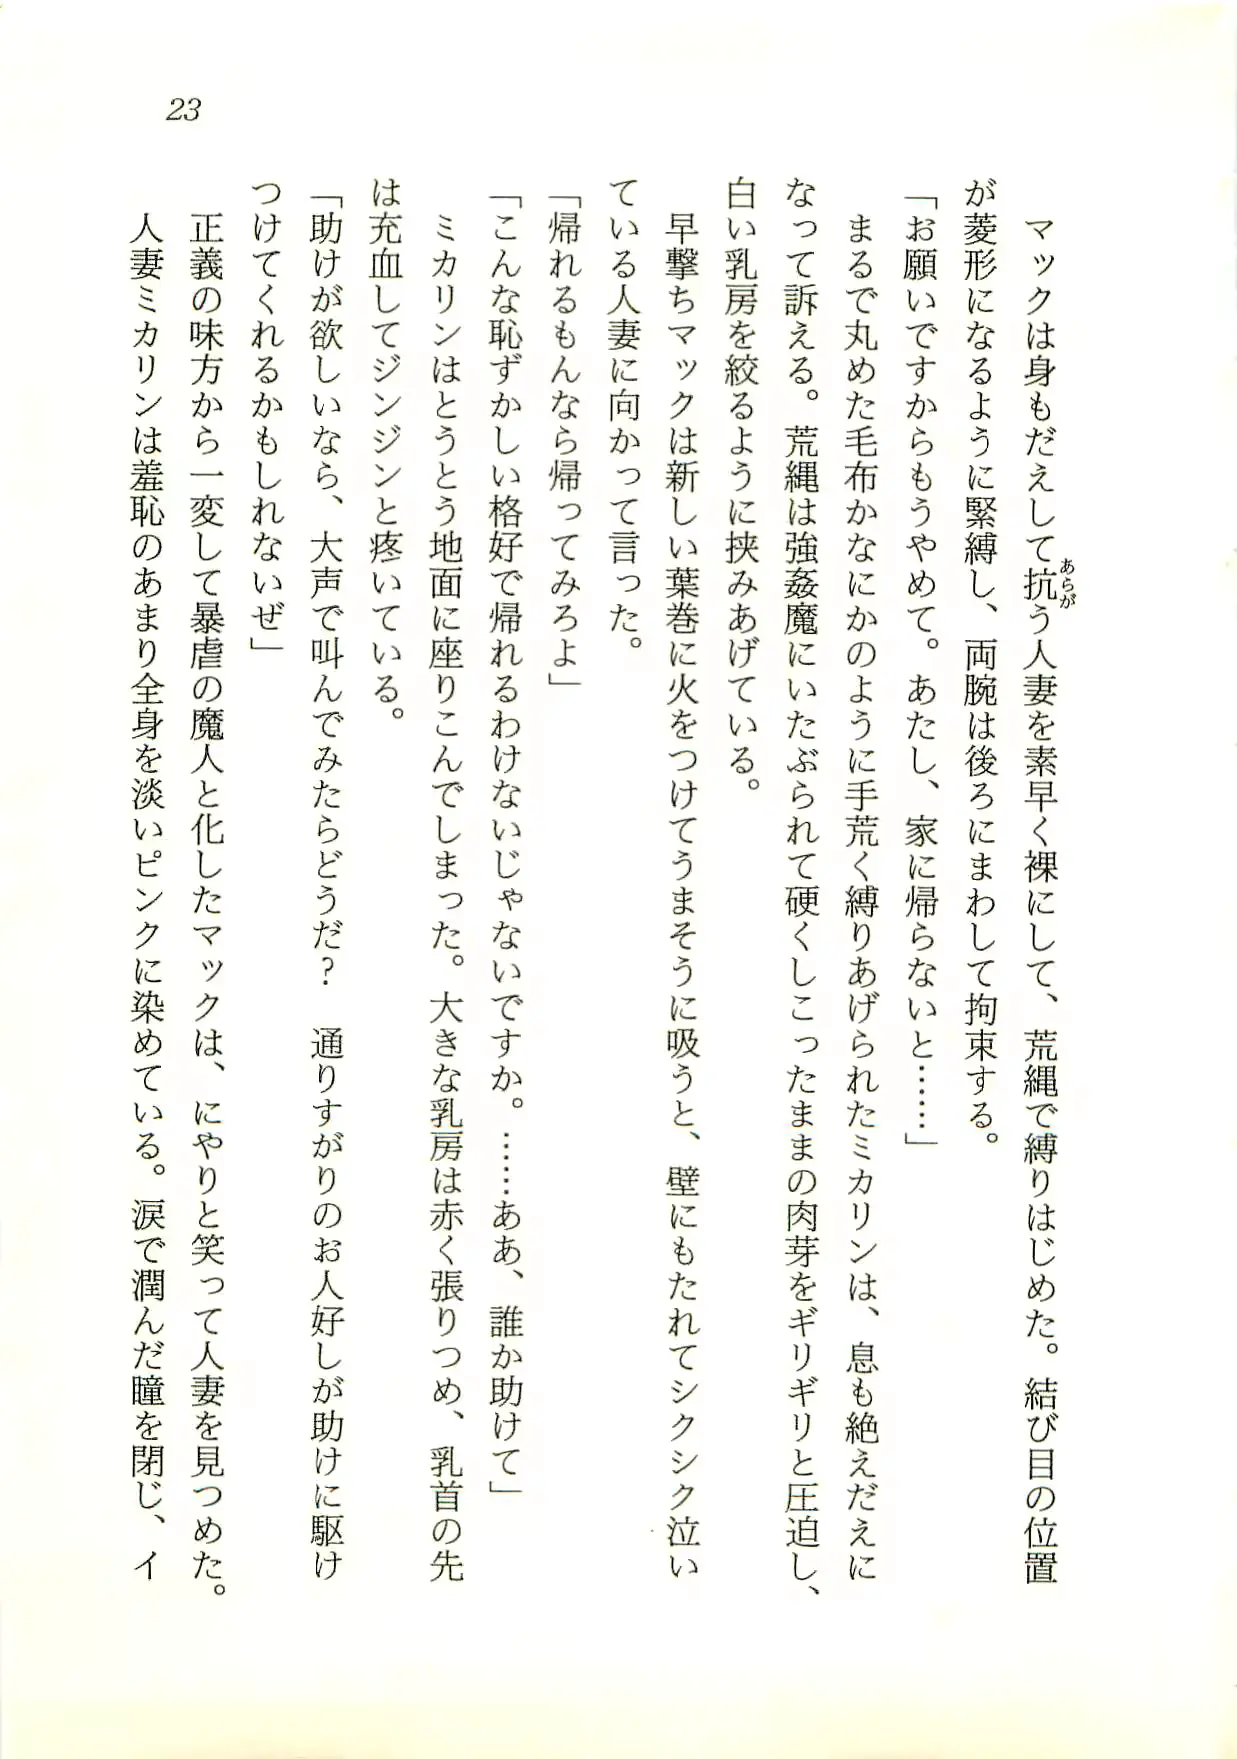 23
マックは身もだえして抗う人妻を素早く裸にして、荒縄で縛りはじめた。結び目の位置
あらが
が菱形になるように緊縛し、両腕は後ろにまわして拘束する。
「お願いですからもうやめて。あたし、家に帰らないと……」
まるで丸めた毛布かなにかのように手荒く縛りあげられたミカリンは、息も絶えだえに
なって訴える。荒縄は強姦魔にいたぶられて硬くしこったままの肉芽をギリギリと圧迫し、
白い乳房を絞るように挟みあげている。
早撃ちマックは新しい葉巻に火をつけてうまそうに吸うと、壁にもたれてシクシク泣い
ている人妻に向かって言った。
「帰れるもんなら帰ってみろよ」
「こんな恥ずかしい格好で帰れるわけないじゃないですか。……ああ、誰か助けて」
ミカリンはとうとう地面に座りこんでしまった。大きな乳房は赤く張りつめ、乳首の先
は充血してジンジンと疼いている。
「助けが欲しいなら、大声で叫んでみたらどうだ？　通りすがりのお人好しが助けに駆け
つけてくれるかもしれないぜ」
正義の味方から一変して暴虐の魔人と化したマックは、にやりと笑って人妻を見つめた。
人妻ミカリンは羞恥のあまり全身を淡いピンクに染めている。涙で潤んだ瞳を閉じ、イ